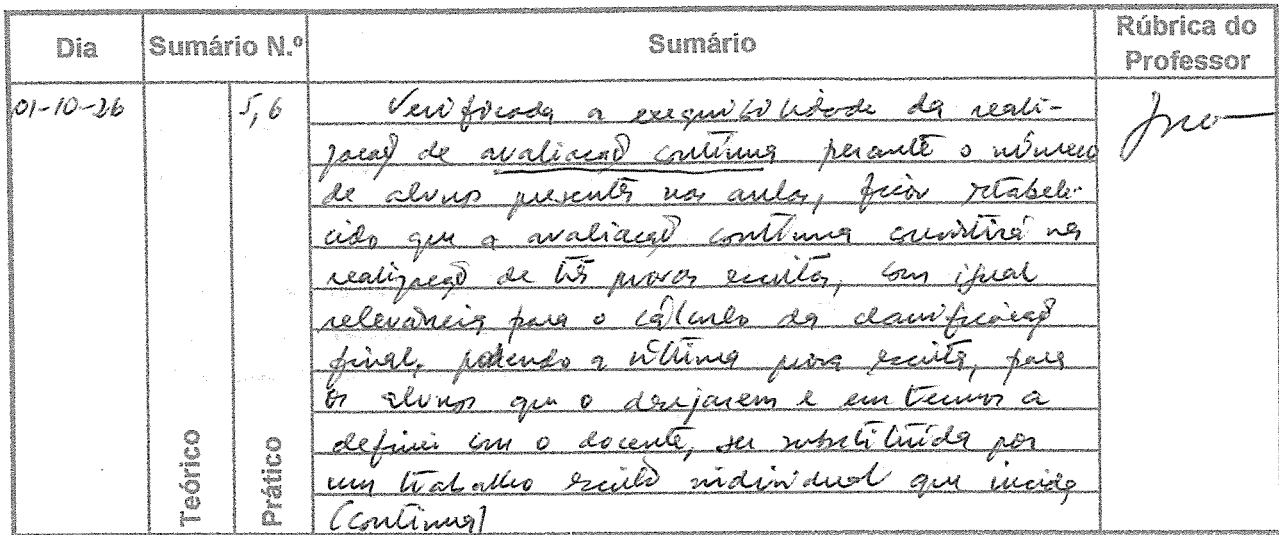 Dia
Sumário N.º
Sumário
Rúbrica do
Professor
01-10-26
5, 6
Verificada a exequibilidade da reali-
zação de avaliação contínua perante o número
de alunos presentes nas aulas, ficou estabele-
cido que a avaliação contínua consistirá na
realização de três provas escritas, com igual
relevância para o cálculo da classificação
final, podendo a última prova escrita, para
os alunos que o desejarem e em termos a
definir com o docente, ser substituída por
um trabalho escrito individual que incida
(continua)
Teórico
Prático